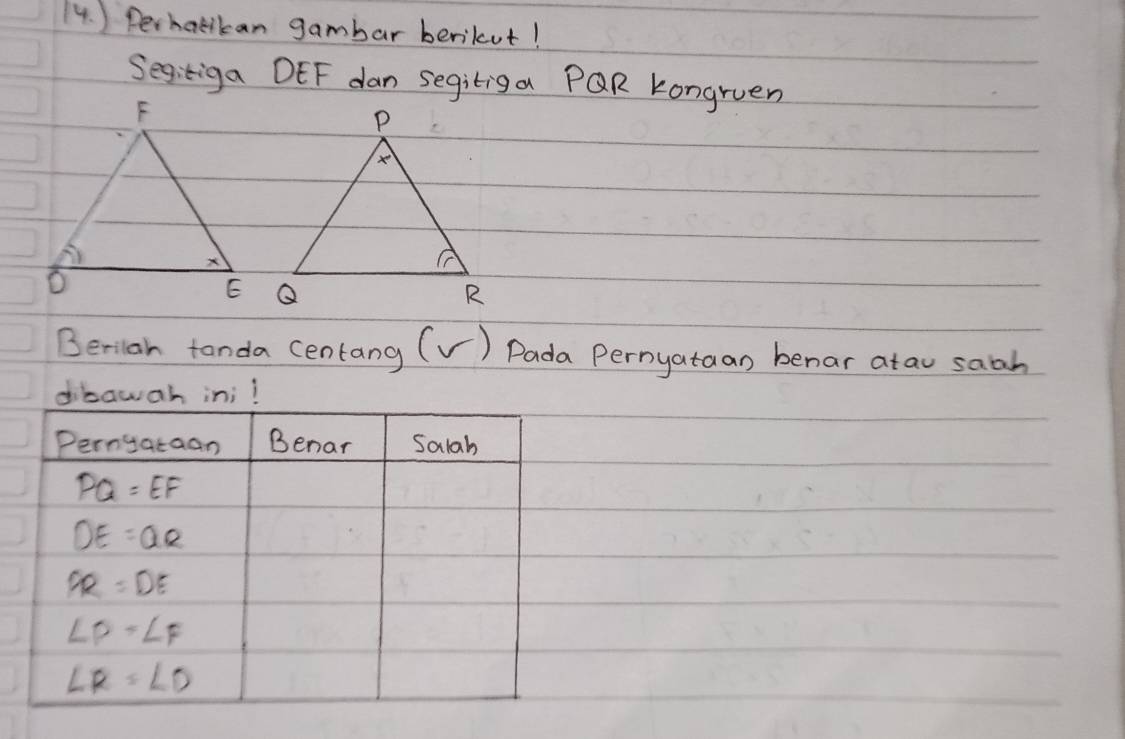 14.) Perhatikan gambar berikut!
Segitiga DEF dan segitiga PQR kongruen
F P
x
x
D E Q R
Berilah tanda centang (√) Pada Pernyataan benar atau salah
dibawah ini!
Pernyataan Benar Salah
PQ = EF
DE = QR
PR = DE
∠P = ∠F
∠R = ∠D